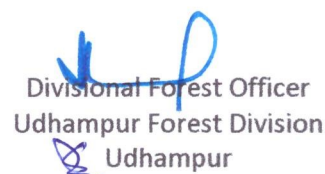 Divisional Forest Officer
Udhampur Forest Division
Udhampur